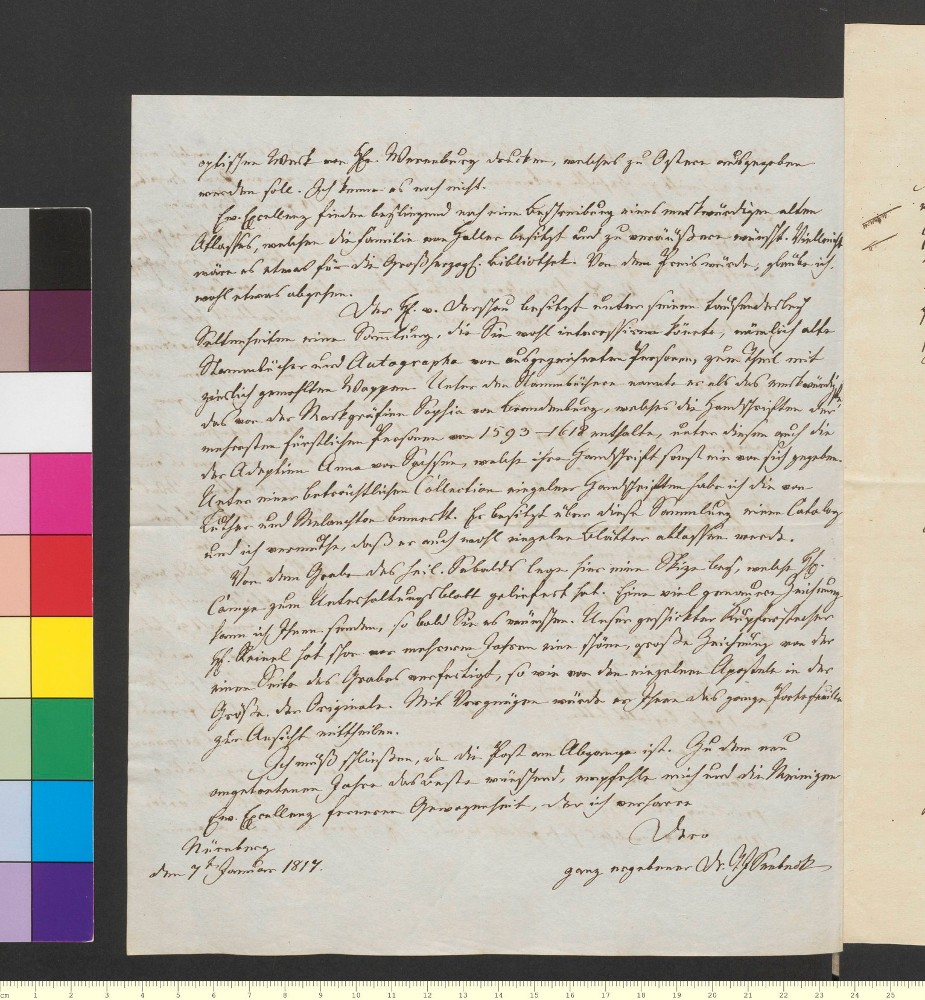 optischen Werk von Hr. Werneburg drucken, welches zu Ostern ausgegeben
werden soll. Ich kenne es noch nicht.
Ew. Excellenz finden beyliegend noch eine Beschreibung eines merkwürdigen alten
Atlasses, welchen die Familie von Haller besitzt und zu veräußern wünscht. Vielleicht
wäre es etwas für die Großherzogl. Bibliothek. Von dem Preis würde, glaube ich,
wohl etwas abgehen.
Der H. v. Derschau besitzt unter seinen tausenderley
Seltenheiten eine Sammlung, die Sie wohl interessiren könnte, nämlich alte
Stammbücher und Autographa von ausgezeichneten Personen, zum Theil mit
zierlich gemahlten Wappen. Unter den Stammbüchern nannte er als das merkwürdigste
das von der Markgräfin Sophia von Brandenburg, welches die Handschriften der
mehresten fürstlichen Personen von 1593–1618 enthalte, unter diesen auch die
der Anna von Sachsen, welche ihre Handschrift sonst nie von sich gegeben
Unter einer beträchtlichen Collection einzelner Handschriften habe ich die von
Luther und Melanchton bemerkt. Er besitzt über diese Sammlung einen Catalog
und ich vermuthe, daß er auch wohl einzelne Blätter ablassen werde.
Von dem Grabe des heil. Sebalds lege hier eine Skize bey, welche H.
Campe zum Unterhaltungsblatt geliefert hat. Eine viel genauere Zeichnung
kann ich Ihnen senden, so bald Sie es wünschen. Unser geschickter Kupferstecher
H. Reindel hat schon vor mehreren Jahren eine schöne, große Zeichnung von der
einen Seite des Grabes verfertigt, so wie von den einzelnen Aposteln in der
Größe der Originale. Mit Vergnügen würde er Ihnen das ganze Portefeuille
zur Ansicht mittheilen.
Ich muß schließen, da die Post am Abgange ist. Zu dem neu
angetretenen Jahre das Beste wünschend, empfehle mich und die Meinigen
Ew. Excellenz fernerem Gewogenheit, der ich verharre
Dero
Nürnberg
den 7ten Januar 1817.
ganz ergebener Dr. TJSeebeck